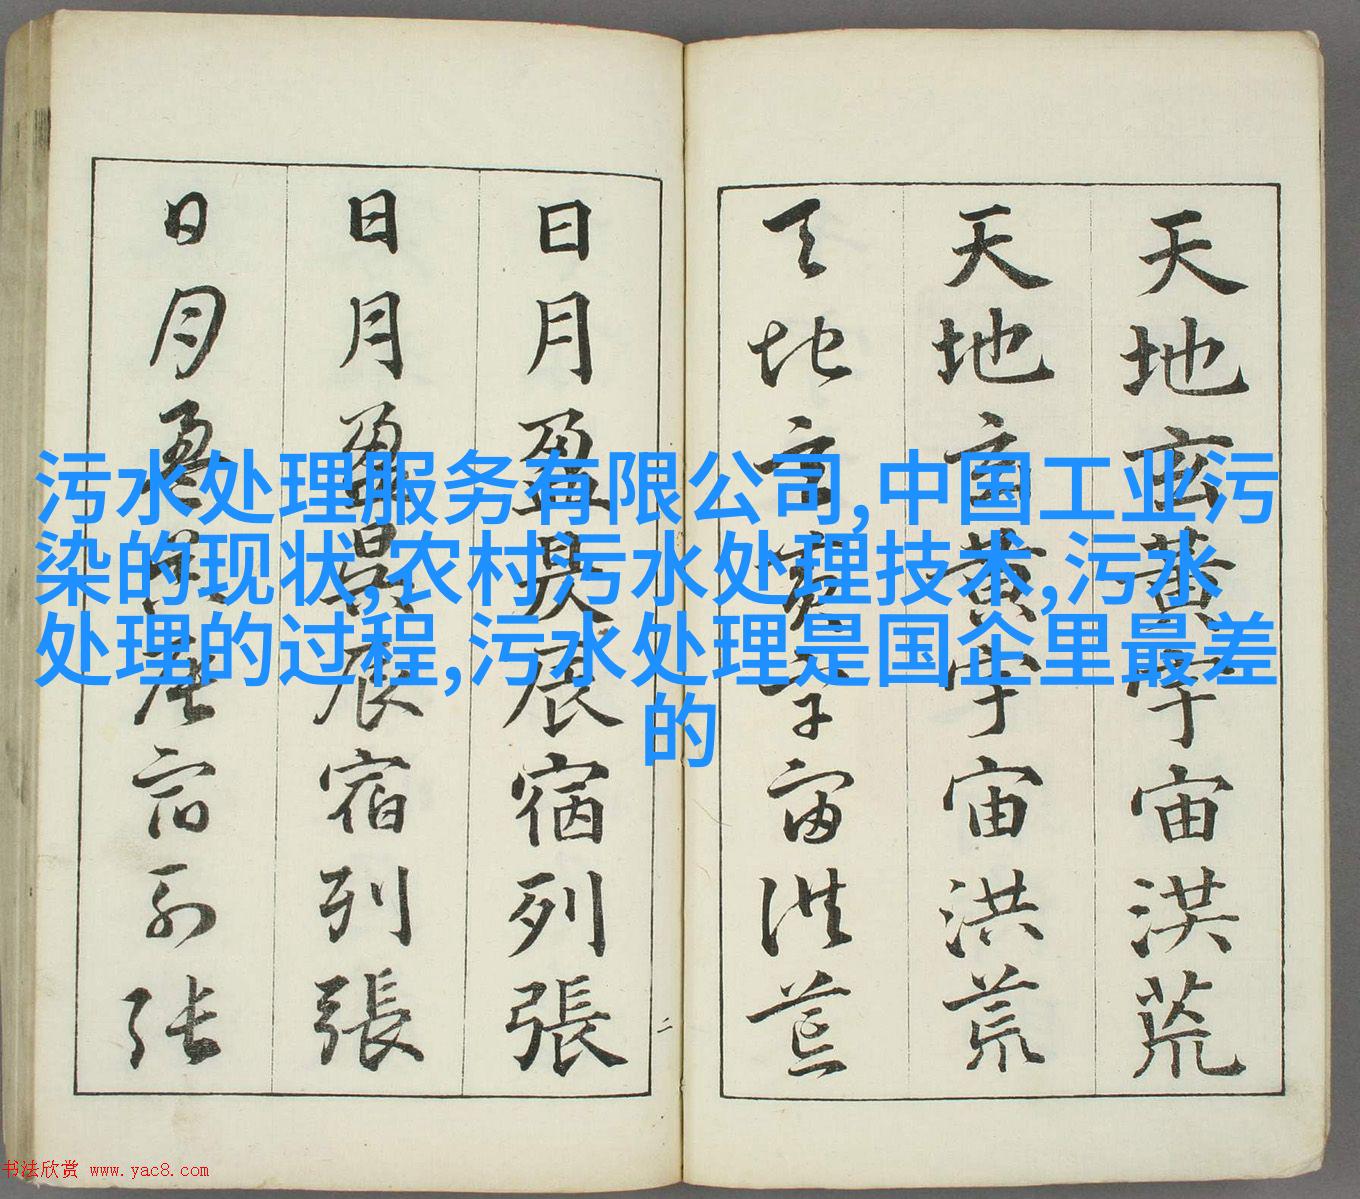 天地玄黄宇宙洪荒
天地玄黄宇宙洪荒
天地玄黄宇宙洪荒
日月盈昃辰宿列張
日月盈昃辰宿列張
日月盈昃辰宿列张
二
污水处理服务有限公司,中国工业污
染的现状,农村污水处理技术,污水
处理的过程,污水处理是国企里最差
的
书法欣赏 www.yac8.com